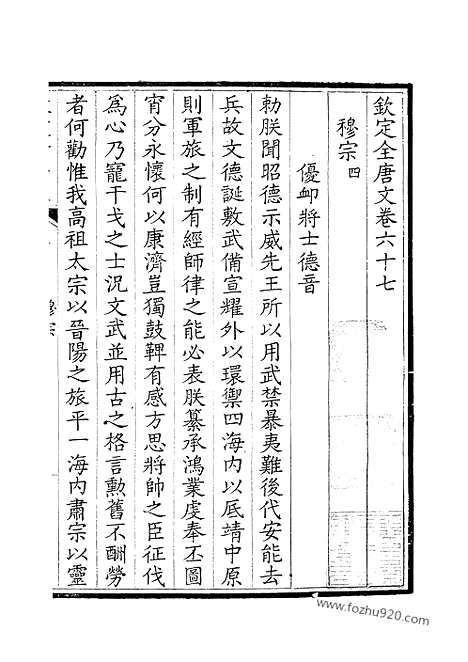 欽定全唐文卷六十七
穆宗四
優卹將士德音
勅朕聞昭德示威先王所以用武禁暴夷難後代安能去
兵故文德誕敷武備宣耀外以環禦四海內以底靖中原
則軍旅之制有經師律之能必表朕纂承鴻業虔奉丕圖
宵分永懷何以康濟豈獨鼓鞞有感方思將帥之臣征伐
為心乃寵干戈之士況文武並用古之格言勳舊不酬勞
者何勸惟我高祖太宗以晉陽之旅平一海內肅宗以靈
穆宗
www.fozhu920.com